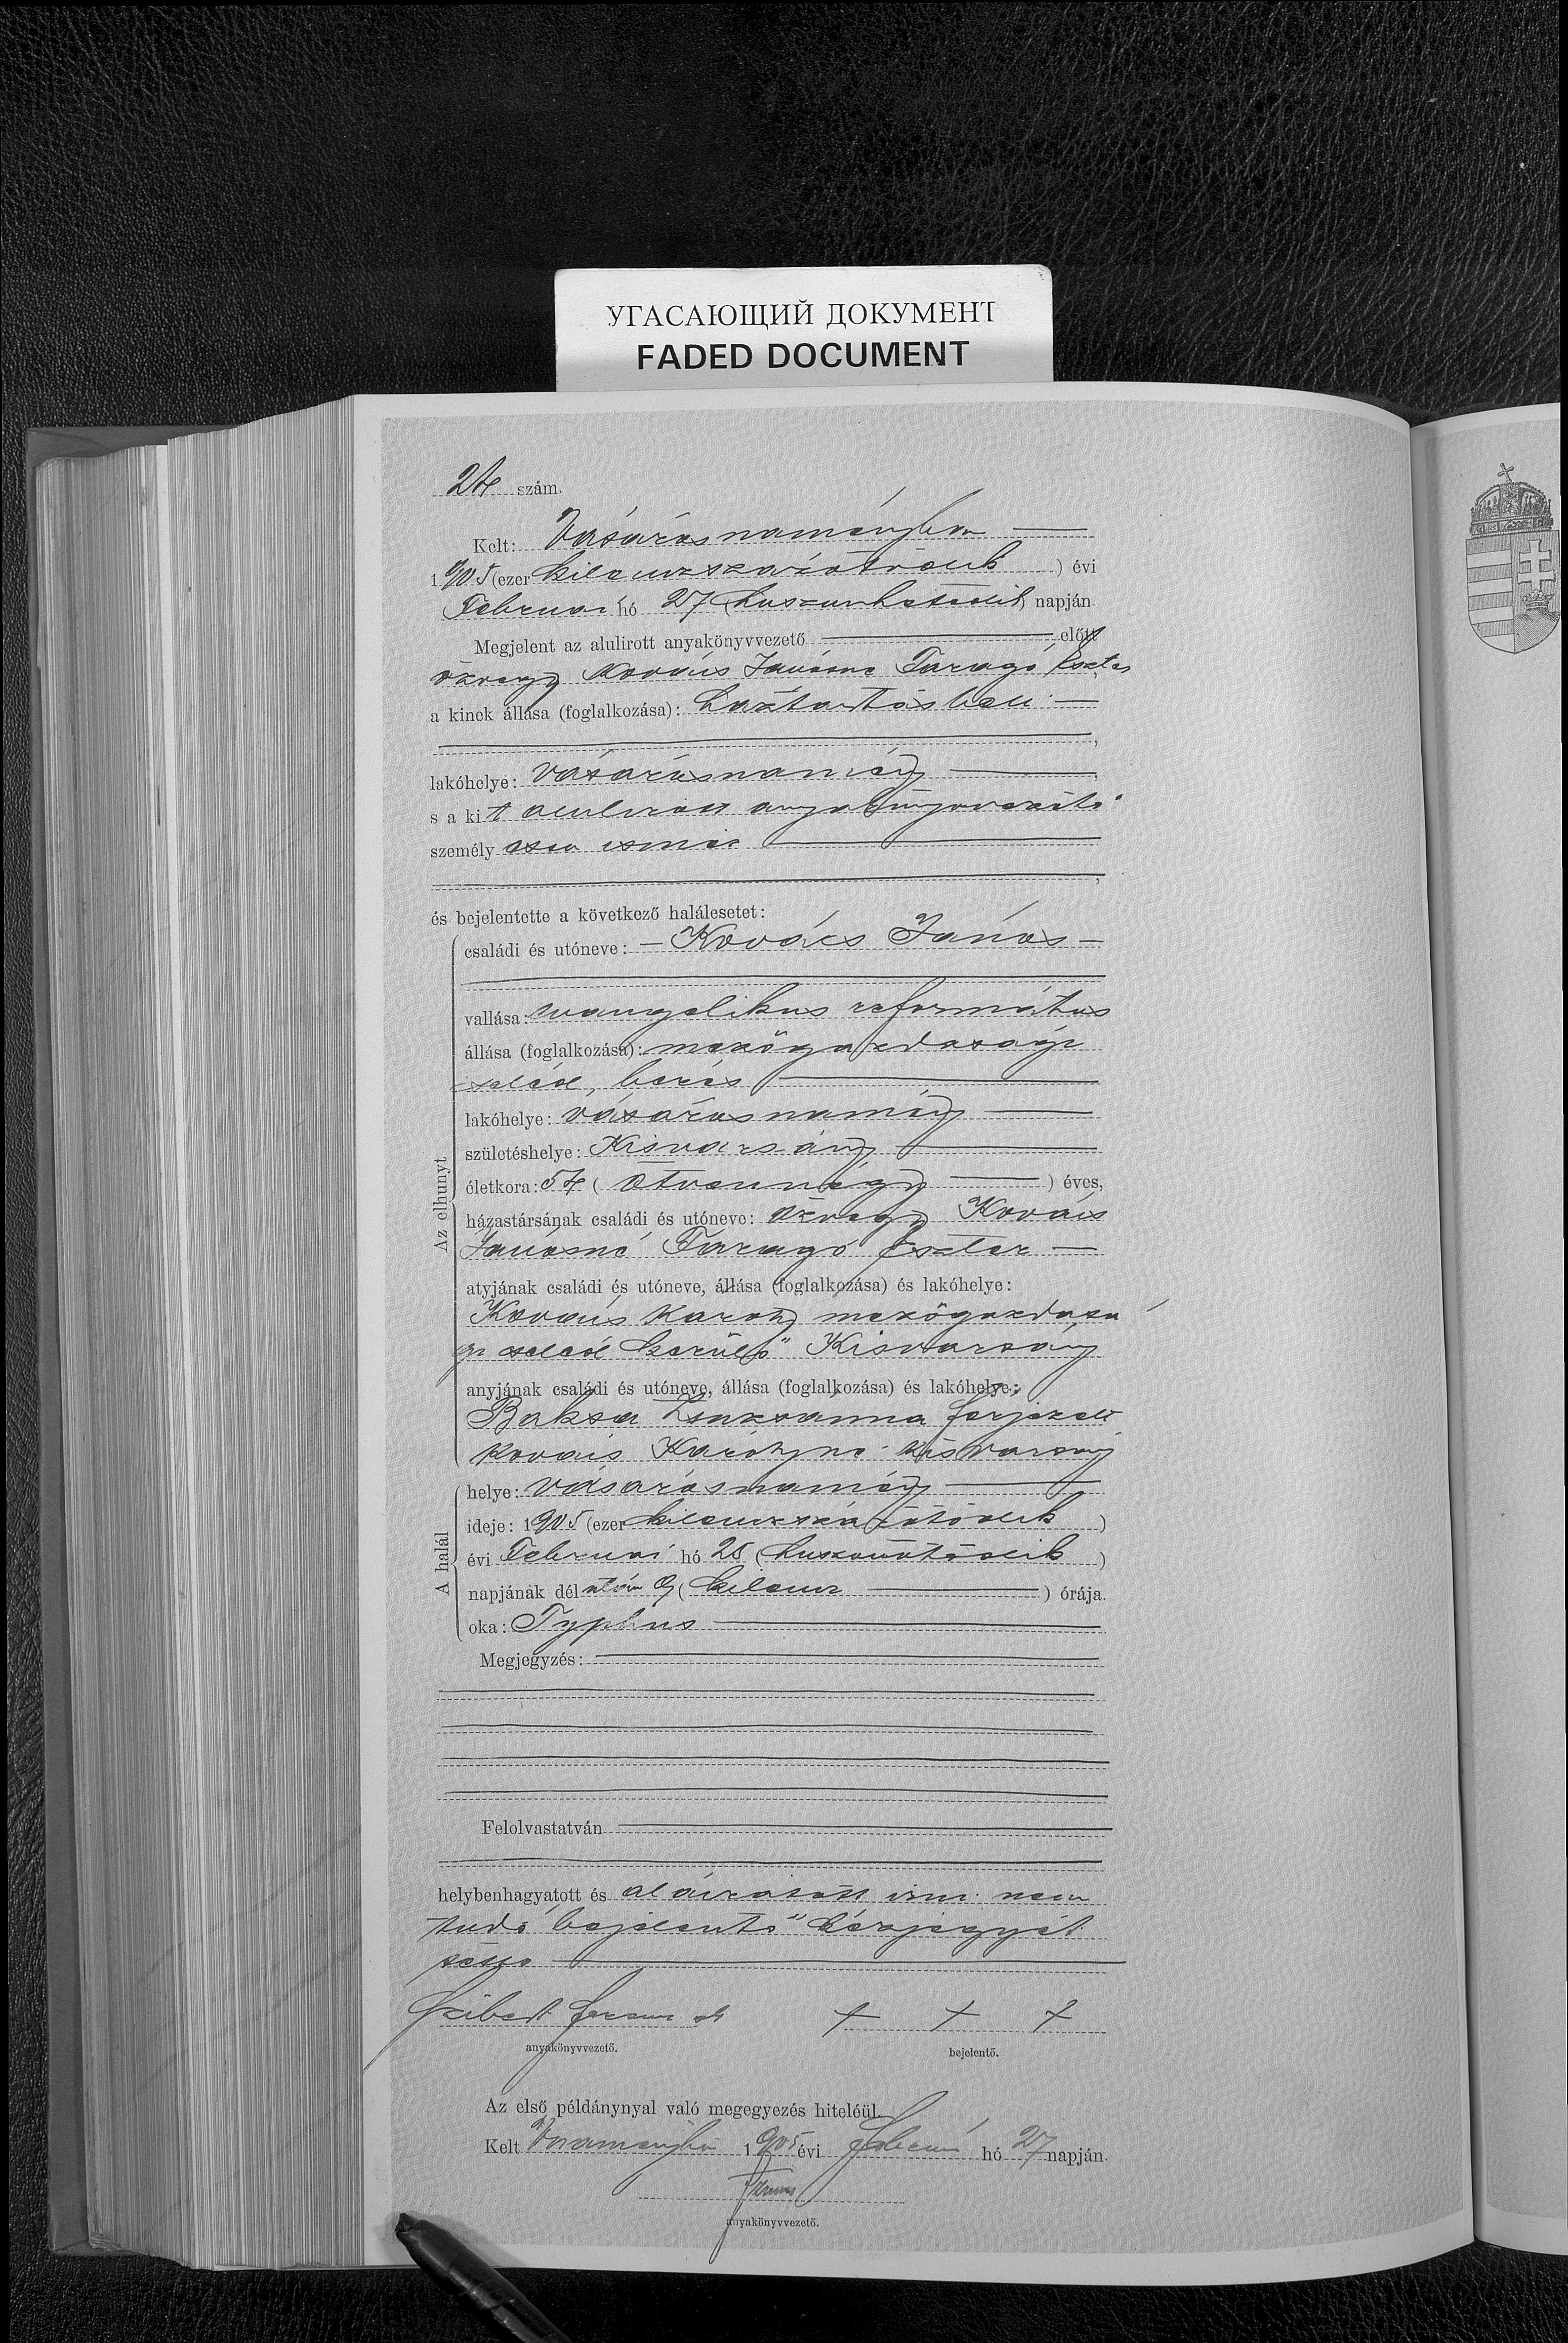 УГАСАЮЩИЙ ДОКУМЕНТ
FADED DOCUMENT
24 szám.
Kelt: Vásárosnaményban
1905 (ezer kilenczszázötödik) évi
Februári hó 27 (huszonhetedik) napján
Megjelent az alulirott anyakönyvvezető előtt
özvegy Kovács Jánosné Faragó Eszter
a kinek állása (foglalkozása): háztartásbeli
,
lakóhelye: vásárosnamény,
s a kit alulirott anyakönyvvezető
személyesen ismer
,
és bejelentette a következő halálesetet:
Az elhunyt
családi és utóneve: Kovács János
vallása: evangelikus református
állása (foglalkozása): mezőgazdasági
cseléd, béres
lakóhelye: vásárosnamény
születéshelye: Kisvarsány
életkora: 54 (ötvennégy) éves,
házastársának családi és utóneve: özvegy Kovács
Jánosné Faragó Eszter
atyjának családi és utóneve, állása (foglalkozása) és lakóhelye:
Kovács Károly mezőgazdasá
gi cseléd kerülő Kisvarsány
anyjának családi és utóneve, állása (foglalkozása) és lakóhelye:
Baksa Zsuzsanna férjezett
Kovács Károlyné kisvarsány
A halál
helye: vásárosnamény
ideje: 1905 (ezer kilenczszázötödik)
évi Februári hó 25 (huszonötödik)
napjának délután 9 (kilencz) órája.
oka: Typhus
Megjegyzés:
Felolvastatván
helybenhagyatott és aláiratott irni nem
tudó bejelentő kézjegyét
anyakönyvvezető.
+ + +
bejelentő.
Az első példánynyal való megegyezés hiteléül.
Kelt Vnaményban 1905 évi Februári hó 27 napján.
anyakönyvvezető.